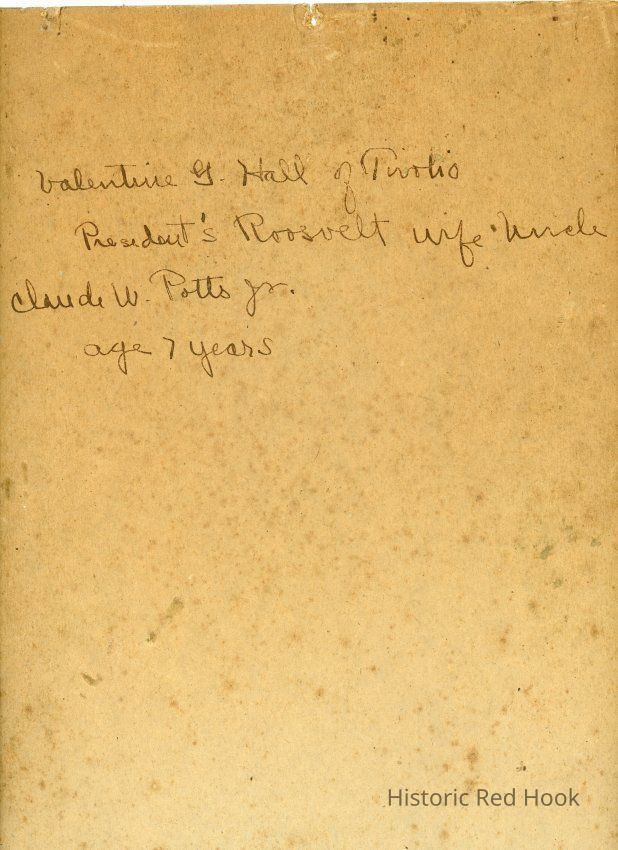 Valentine G. Hall of Tivolio
President's Roosvelt wife Uncle
Claude W. Potts Jr.
age 7 years
Historic Red Hook